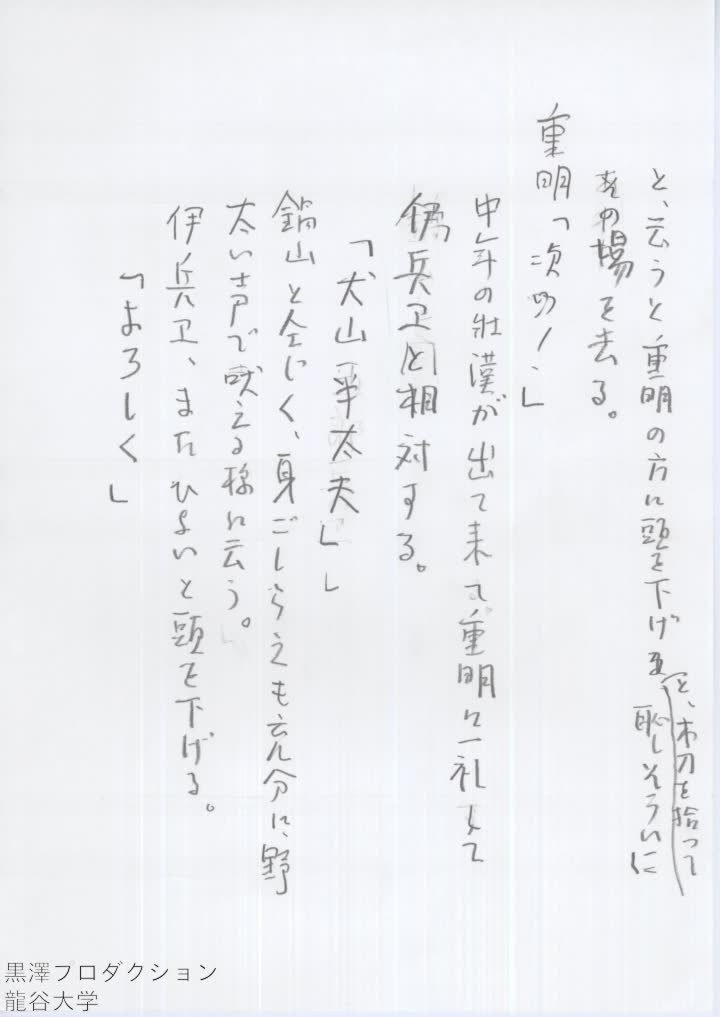 と、云うと重明の方に頭を下げる
と、木刀を拾って
恥しそうに
その場を去る。
重明「次の！」
中年の壮漢が出て来て重明に一礼して
伊兵卫と相対する。
「犬山半太夫」
鍋山と仝じく、身ごしらえも充分に、野
太い声で吠える様に云う。
伊兵卫、またひょいと頭を下げる。
「よろしく」
黒澤プロダクション
龍谷大学